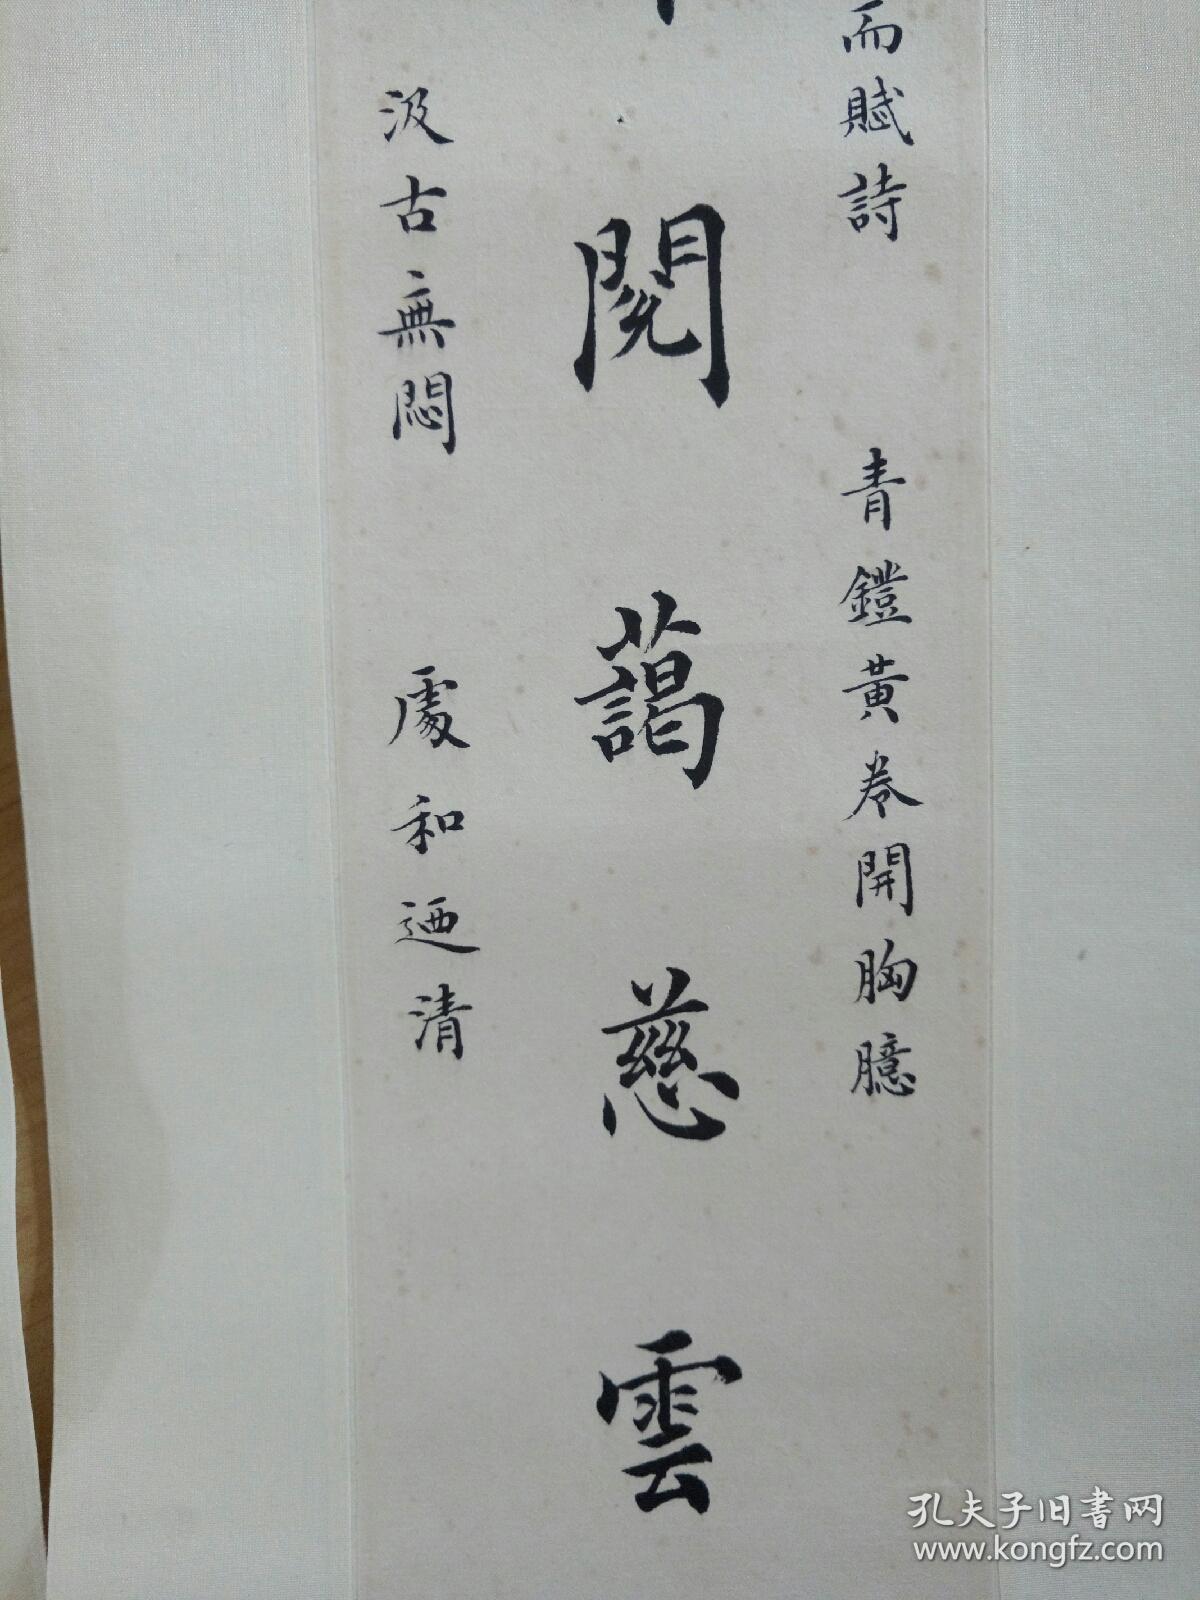 而賦詩 青鐙黃卷開胸臆
閱藹慈雲
汲古無悶 處和迺清
孔夫子旧书网
www.kongfz.com